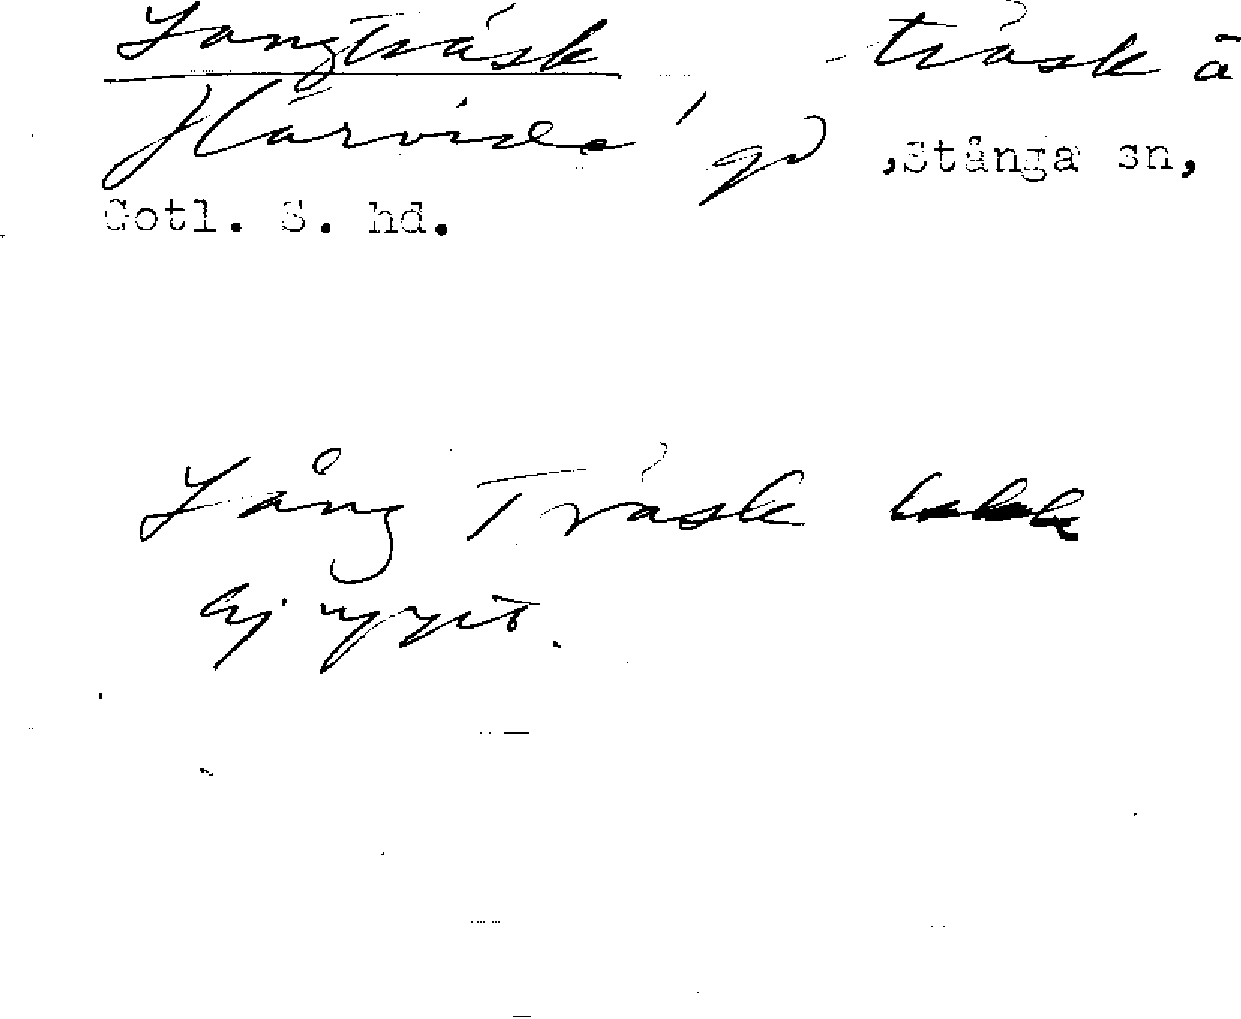 Langträsk träsk å
Harvide gd ,Stånga sn,
Gotl. S. hd.
Lång Träsk
ej uppt.